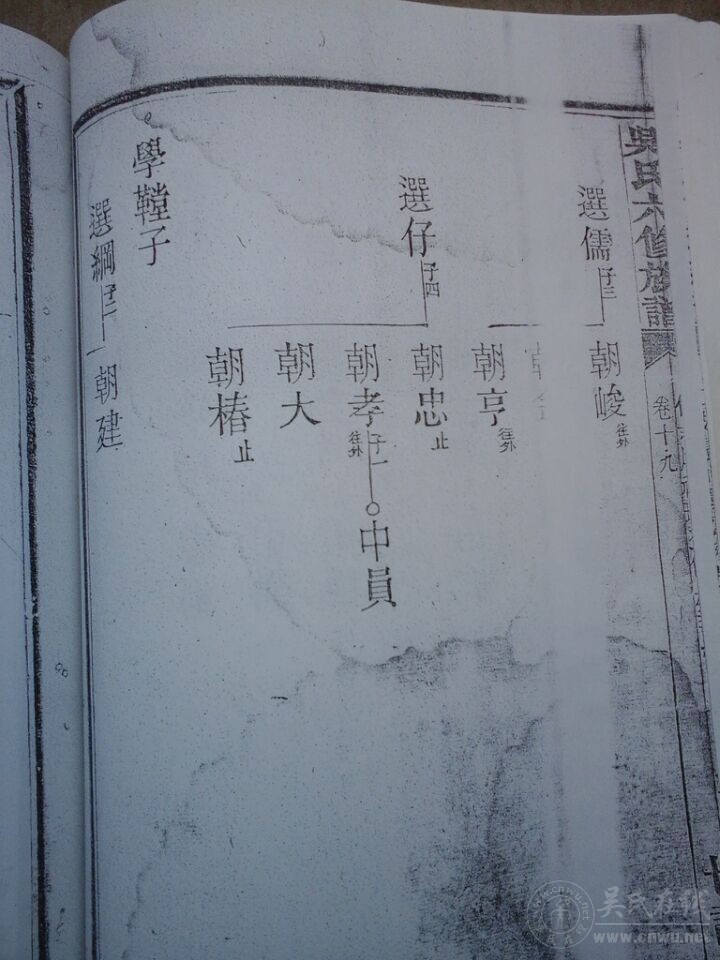 吳氏六修族譜
卷十九
選儒 子三
朝峻 往外
朝亨 往外
選仔 子四
朝忠 止
朝孝 往外 子一
中員
朝大
朝椿 止
學鞺子
選綱 子二
朝建
吴氏在线
www.cnwu.net